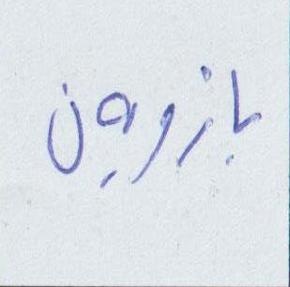 بازوبەن